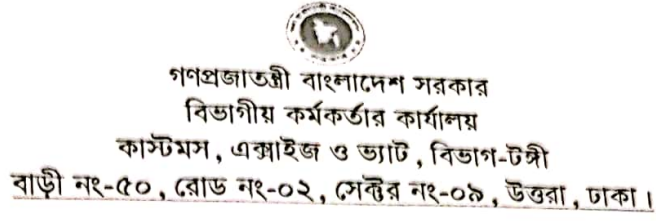 গণপ্রজাতন্ত্রী বাংলাদেশ সরকার
বিভাগীয় কর্মকর্তার কার্যালয়
কাস্টমস, এক্সাইজ ও ভ্যাট, বিভাগ-টঙ্গী
বাড়ী নং-৫০, রোড নং-০২, সেক্টর নং-০৯, উত্তরা, ঢাকা।